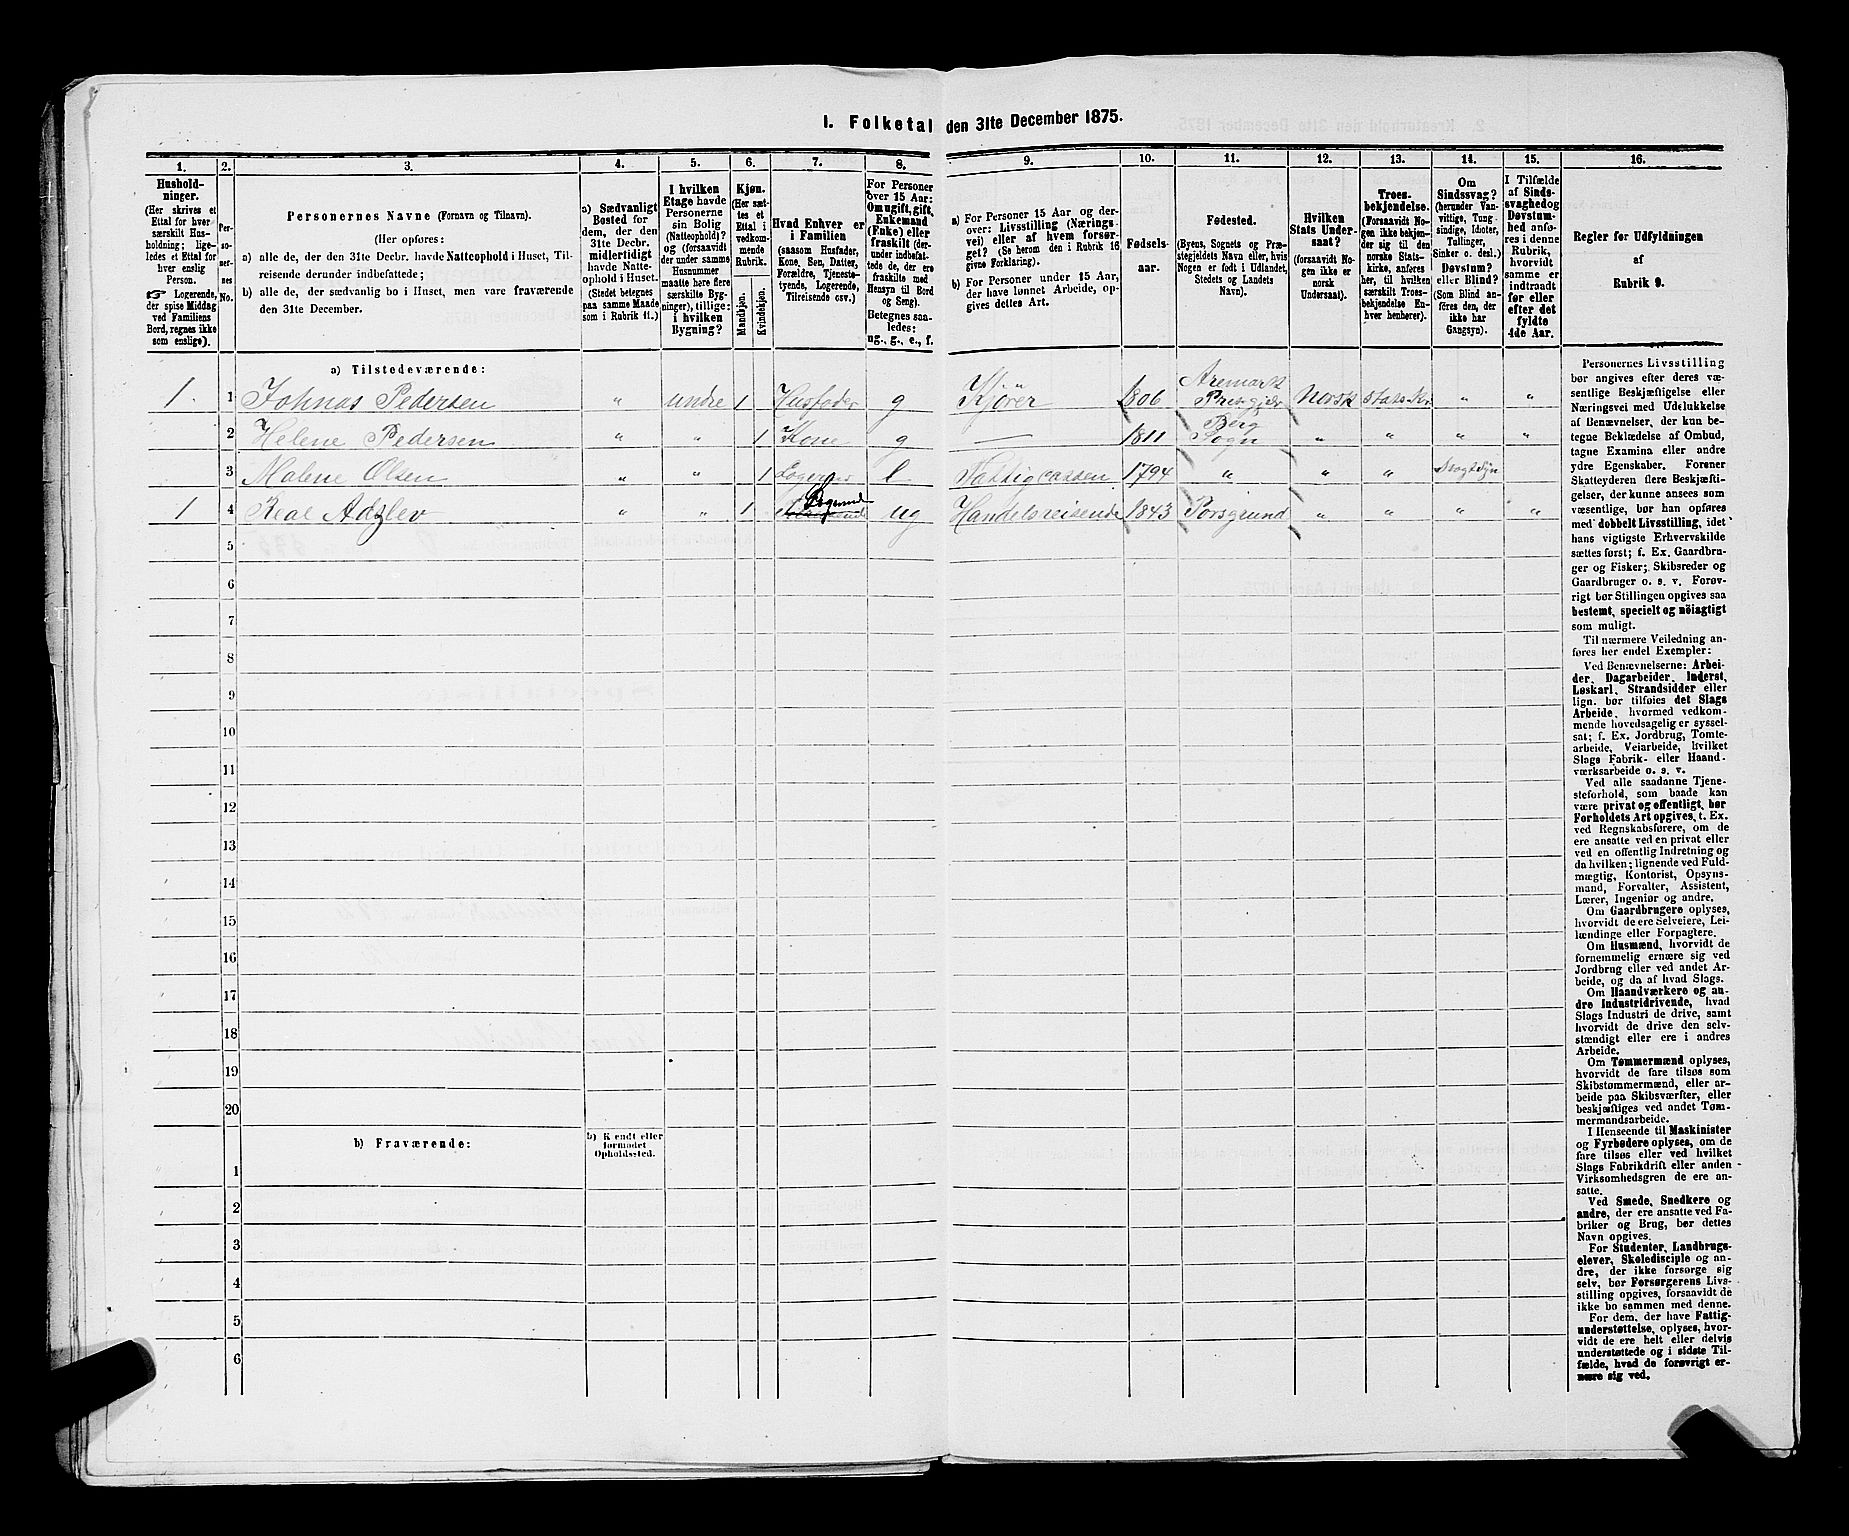 1. Folketal den 31te December 1875.
1.
2.
3.
4.
5.
6.
7.
8.
9.
10.
11.
12.
13.
14.
15.
16.
Hushold-
ninger.
(Her skrives et
Ettal for hver
særskilt Hus-
holdning; lige-
ledes et Ettal for
hver enslig
Person.
☞ Logerende,
der spise Middag
ved Familiens
Bord, regnes ikke
som enslige).
Per-
so-
ner-
nes
No.
Personernes Navne (Fornavn og Tilnavn).
(Her opføres:
a) alle de, der den 31te Decbr. havde Natteophold i Huset, Til-
reisende derunder indbefattede;
b) alle de, der sædvanlig bo i Huset, men vare fraværende
den 31te December.
a) Sædvanligt
Bosted for
dem, der den
31te Decbr.
midlertidigt
havde Natte-
ophold i Huset.
(Stedet betegnes
paa samme Maade
som i Rubrik 11.)
I hvilken
Etage havde
Personerne
sin Bolig
(Natteophold)?
og (forsaavidt
der under samme
Husnummer
maatte høre flere
særskilte Byg-
ninger), tillige:
i hvilken
Bygning?
Kjøn.
(Her sæt-
tes et
Ettal i
vedkom-
mende
Rubrik.
Mandkjøn.
Kvindekjøn.
Hvad Enhver er
i Familien
(saasom Husfader,
Kone, Søn, Datter,
Forældre, Tjeneste-
tyende, Logerende,
Tilreisende csv.)
For Personer
over 15 Aar:
Omugift, gift,
Enkemand
(Enke) eller
fraskilt (der-
under indbefat-
tede de, der ere
fraskilte med
Hensyn til Bord
og Seng).
Betegnes saa-
ledes:
ug., g., e., f.
a) For Personer 15 Aar og der-
over: Livsstilling (Nærings-
vei) eller af hvem forsør-
get? (Se herom den i Rubrik 16
givne Forklaring).
b) For Personer under 15 Aar,
der have lønnet Arbeide, op-
gives dettes Art.
Fødsels-
aar.
Fødested.
(Byens, Sognets og Præ-
stegjeldets Navn eller, hvis
Nogen er født i Udlandet,
Stedets og Landets
Navn).
Hvilken
Stats Under-
saat?
(forsaavidt No-
gen ikke er
norsk
Undersaat).
Troes-
bekjendelse.
(Forsaavidt No-
gen ikke bekjen-
der sig til den
norske Stats-
kirke, anføres
her, til hvilken
særskilt Troes-
bekjendelse En-
hver henhører).
Om
Sindssvag?
(herunder Van-
vittige, Tung-
sindige, Idioter,
Tullinger,
Sinker o. desl.)
Døvstum?
eller Blind?
(Som Blind an-
føres den, der
ikke har
Gangsyn).
I Tilfælde
af Sinds-
svaghed og
Døvstum-
hed anfø-
res i denne
Rubrik,
hvorvidt
samme er
indtraadt
før eller
efter det
fyldte
4de Aar.
Regler for Udfyldningen
af
Rubrik 9.
a) Tilstedeværende:
1. 1 Johnas Pedersen „ undre 1 Husfader g Kjører 1806 Aremark
Præsgjæ Norsk Stats Kr „ „
2 Helene Pedersen „ „ 1 Kone g — 1811 Berg
Sogn „ „ „ „
3 Malene Olsen „ „ 1 l 1794 „ „ „
1 4 „ „ 1 Logerende ug Handelsreisende 1843 Porsgrund „ „ „ „
5
6
7
8
9
10
11
12
13
14
15
16
17
18
19
20
b) Fraværende:
b) Kjendt eller
formodet
Opholdssted.
1
2
3
4
5
6
Personernes Livsstilling
bør angives efter deres væ-
sentlige Beskjæftigelse eller
Næringsvei med Udelukkelse
af Benævnelser, der kun be-
tegne Beklædelse af Ombud,
tagne Examina eller andre
ydre Egenskaber. Forener
Skatteyderen flere Beskjæfti-
gelser, der kunne ansees som
væsentlige, bør han opføres
med dobbelt Livsstilling, idet
hans vigtigste Erhvervskilde
sættes først; f. Ex. Gaardbru-
ger og Fisker; Skibsreder og
Gaardbruger o. s. v. Forøv-
rigt bør Stillingen opgives saa
bestemt, specielt og nöiagtigt
som muligt.
Til nærmere Veiledning an-
føres her endel Exempler:
Ved Benævnelserne: Arbei-
der, Dagarbeider, Inderst,
Løskarl, Strandsidder eller
lign. bør tilføies det Slags
Arbeide, hvormed vedkom-
mende hovedsagelig er syssel-
sat; f. Ex. Jordbrug, Tomte-
arbeide, Veiarbeide, hvilket
Slags Fabrik- eller Haand-
værksarbeide o. s. v.
Ved alle saadanne Tjene-
steforhold, som baade kan
være privat og offentligt, bør
Forholdets Art opgives, t. Ex.
ved Regnskabsførere, om de
ere ansatte ved en privat eller
ved en offentlig Indretning og
da hvilken; lignende ved Fuld-
mægtig, Kontorist, Opsyns-
mand, Forvalter, Assistent,
Lærer, Ingeniør og andre.
Om Gaardbrugere oplyses,
hvorvidt de ere Selveiere, Lei-
lændinge eller Forpagtere.
Om Husmænd, hvorvidt de
fornemmelig ernære sig ved
Jordbrug eller ved andet Ar-
beide, og da af hvad Slags.
Om Haandværkere og an-
dre Industridrivende, hvad
Slags Industri de drive, samt
hvorvidt de drive den selv-
stændigt eller ere i andres
Arbeide.
Om Tømmermænd oplyses,
hvorvidt de fare tilsøs som
Skibstømmermænd, eller ar-
beide paa Skibsværfter, eller
beskjæftiges ved andet Tøm-
mermandsarbeide.
I Henseende til Maskinister
og Fyrbødere oplyses, om de
fare tilsøs eller ved hvilket
Slags Fabrikdrift eller anden
Virksomhedsgren de ere an-
satte.
Ved Smede, Snedkere og
andre, der ere ansatte ved Fa-
briker og Brug, bør dettes
Navn opgives.
For Studenter, Landbrugs-
elever, Skoledisciple og an-
dre, der ikke forsørge sig
selv, bør Forsørgerens Livs-
stilling opgives, forsaavidt de
ikke bo sammen med denne.
For dem, der have Fattig-
understøttelse, oplyses, hvor-
vidt de ere helt eller delvis
understøttede og i sidste Til-
fælde, hvad de forøvrigt er-
nære sig ved.